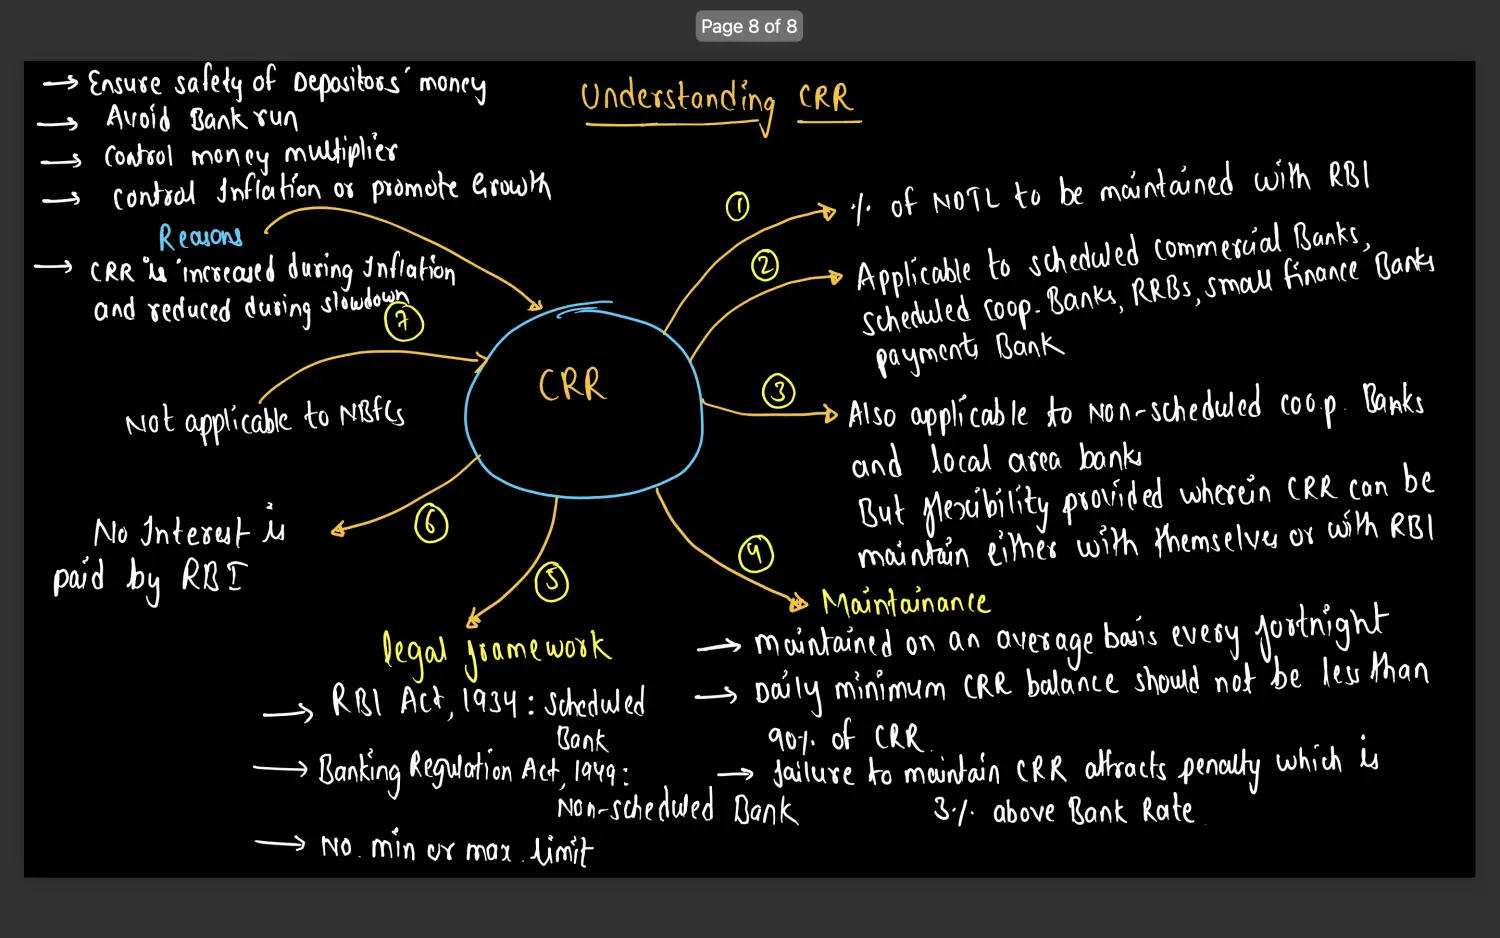 Page 8 of 8
Understanding CRR
→ Ensure safety of Depositors' money
→ Avoid Bank run
→ Control money multiplier
→ Control Inflation or promote Growth
Reasons
→ CRR is increased during Inflation
and reduced during slowdown
CRR
①
% of NDTL to be maintained with RBI
②
Applicable to scheduled commercial Banks,
scheduled coop. Banks, RRBs, small finance Banks
payments Bank
③
Also applicable to Non-scheduled coop. Banks
and local area banks
But flexibility provided wherein CRR can be
maintain either with themselves or with RBI
④
Maintainance
→ maintained on an average basis every fortnight
→ Daily minimum CRR balance should not be less than
90% of CRR.
→ failure to maintain CRR attracts penalty which is
3% above Bank Rate.
⑤
legal framework
→ RBI Act, 1934: Scheduled
Bank
→ Banking Regulation Act, 1949:
Non-scheduled Bank
→ No. min or max. limit
⑥
No Interest is
paid by RBI
⑦
Not applicable to NBFCs